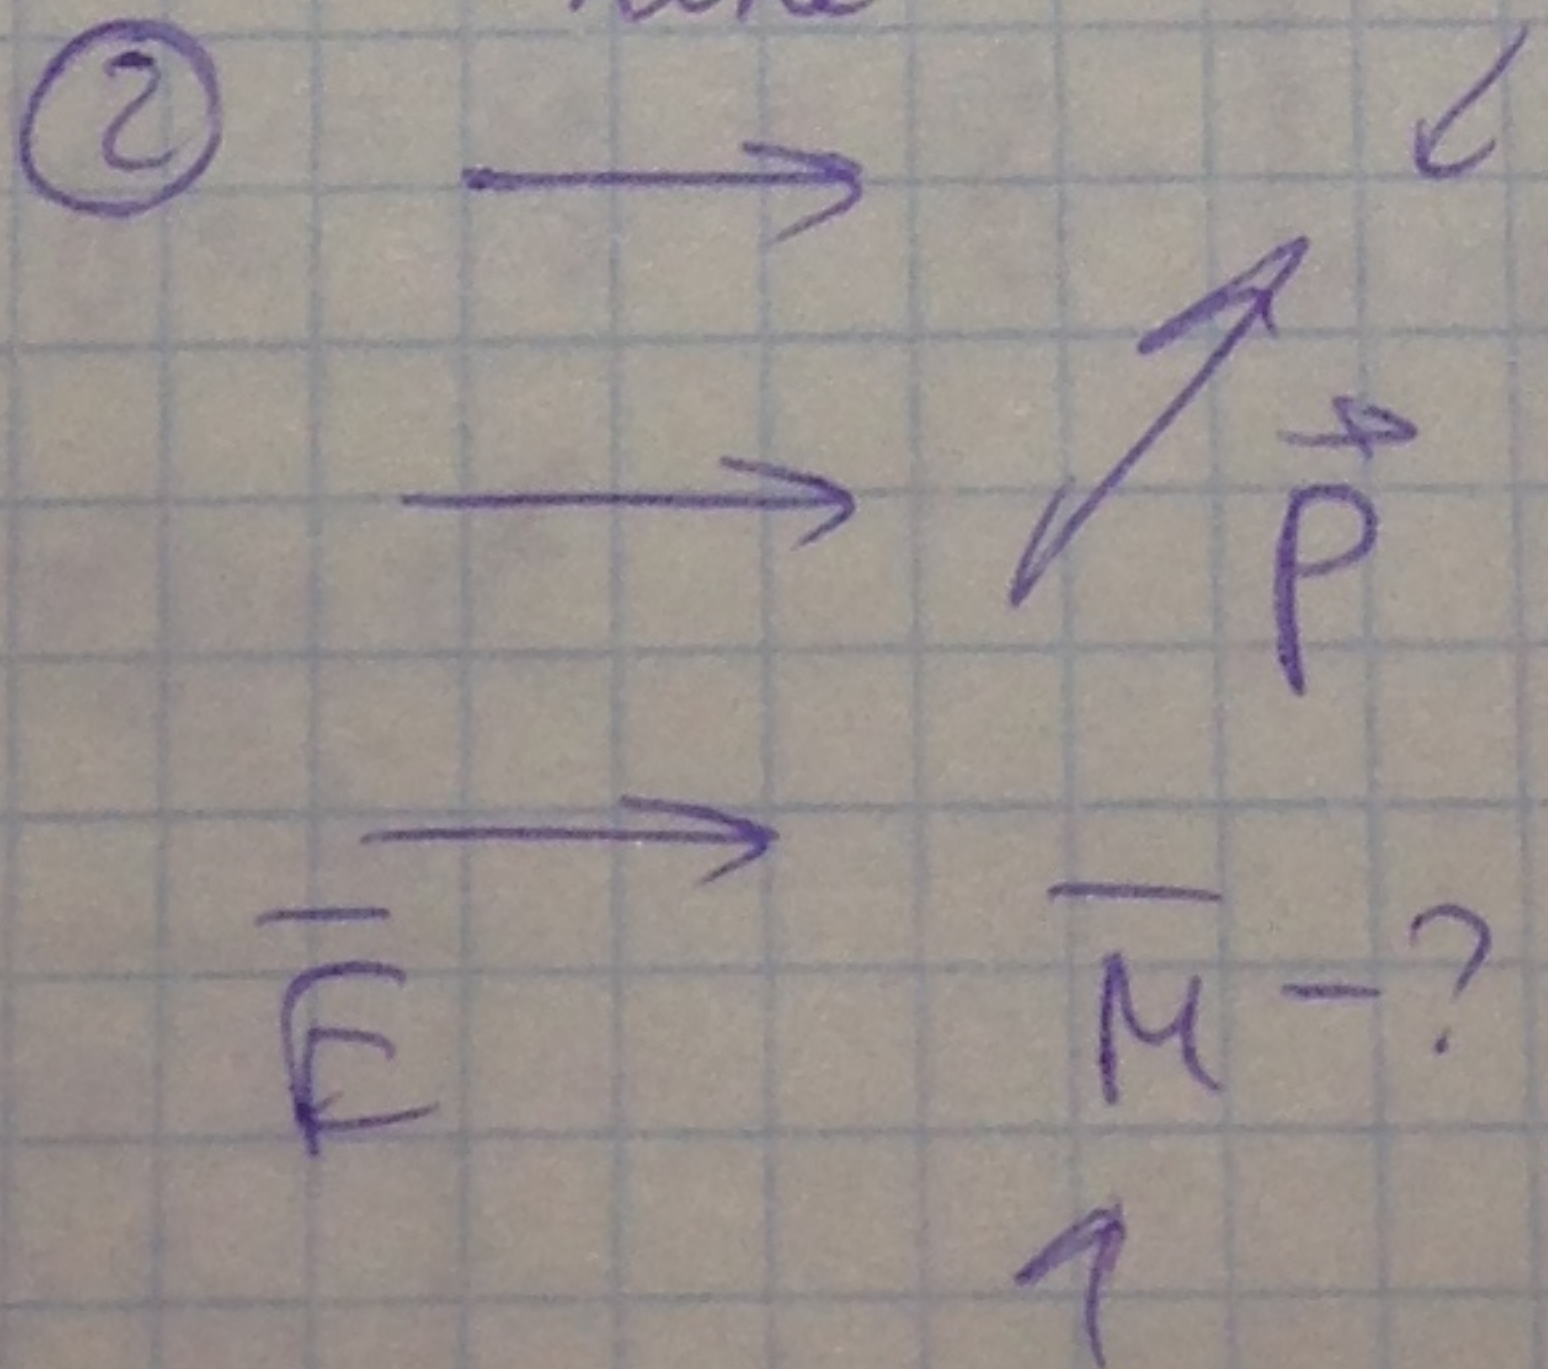 2
P
E
M - ?